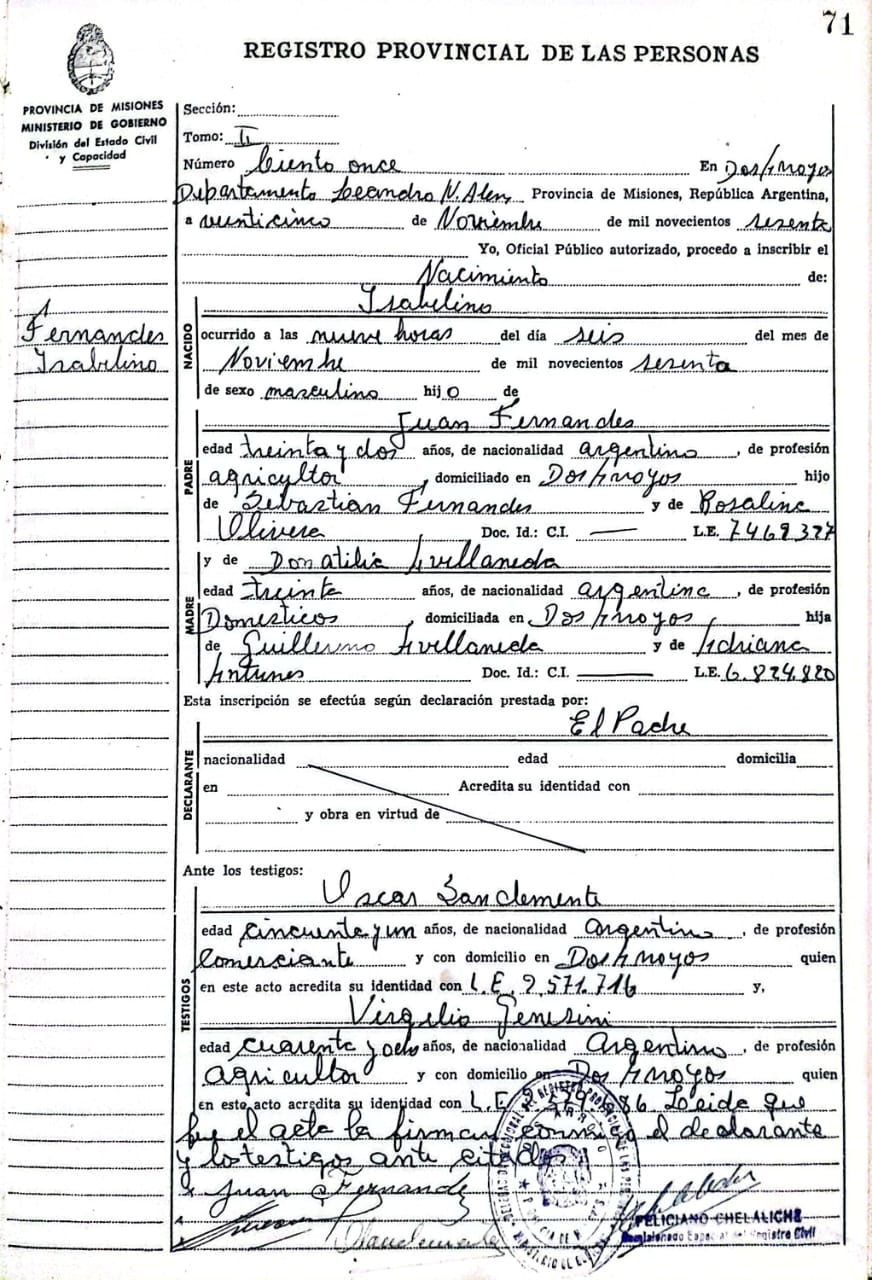 71
REGISTRO PROVINCIAL DE LAS PERSONAS
PROVINCIA DE MISIONES
MINISTERIO DE GOBIERNO
División del Estado Civil
y Capacidad
Sección:
Tomo: II
Número Ciento once En Dos Arroyos
Departamento Leandro N. Alem, Provincia de Misiones, República Argentina,
a veinticinco de Noviembre de mil novecientos sesenta
Yo, Oficial Público autorizado, procedo a inscribir el
Nacimiento de:
Fernandes
Isabelino
NACIDO
Isabelino
ocurrido a las nueve horas del día seis del mes de
Noviembre de mil novecientos sesenta
de sexo masculino hijo de
PADRE
Juan Fernandes
edad treinta y dos años, de nacionalidad argentino, de profesión
agricultor, domiciliado en Dos Arroyos hijo
de Sebastian Fernandes y de Rosalina
Olivera Doc. Id.: C.I. — L.E. 7469327
MADRE
y de Donatilia Avellaneda
edad treinta años, de nacionalidad argentina, de profesión
Domesticos, domiciliada en Dos Arroyos, hija
de Guillermo Avellaneda y de Adriana
Antunes Doc. Id.: C.I. — L.E. 6.824.820
Esta inscripción se efectúa según declaración prestada por:
El Padre
DECLARANTE
nacionalidad edad domicilia
en Acredita su identidad con
y obra en virtud de
Ante los testigos:
TESTIGOS
Oscar Sanclemente
edad cincuenta y un años, de nacionalidad Argentino, de profesión
Comerciante y con domicilio en Dos Arroyos quien
en este acto acredita su identidad con L.E. 2.571.716 y,
Virgilio Genesini
edad cuarenta y ocho años, de nacionalidad Argentino, de profesión
agricultor y con domicilio en Dos Arroyos quien
en este acto acredita su identidad con L.E. Leida que
fue el acta la firman conmigo el declarante
y los testigos ante citados
x Juan Fernande
Sanclemente
FELICIANO CHELALICHE
Comisionado Especial del Registro Civil